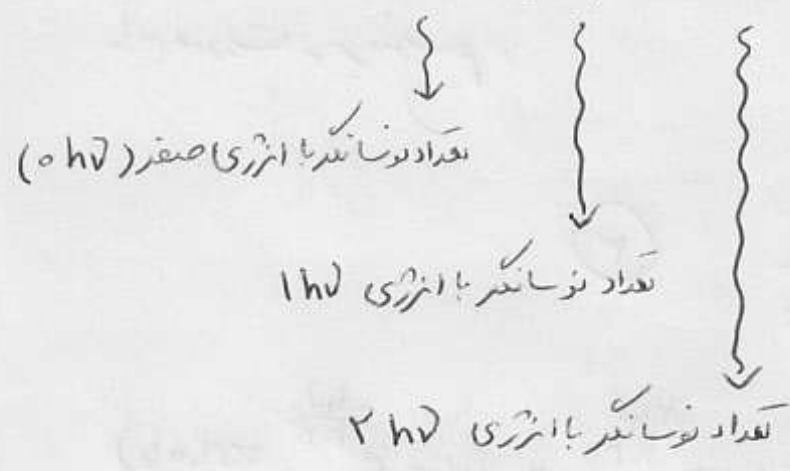 تعداد نوسانگر با انرژی صفر (۰ hν)
تعداد نوسانگر با انرژی ۱ hν
تعداد نوسانگر با انرژی ۲ hν